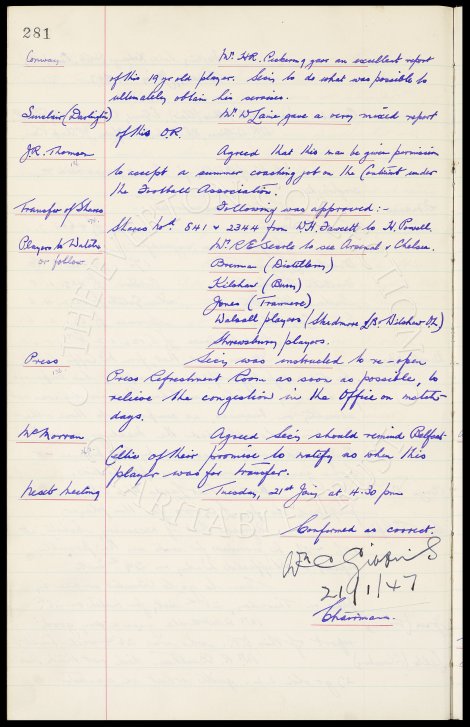 281
Conway Mr. H.R. Pickering gave an excellent report
of this 19 yr old player. Secy to do what was possible to
ultimately obtain his services.
Sinclair (Darlington) Mr. W Laine gave a very mixed report
of this O.R.
J.R. Thomson Agreed that this man be given permission
to accept a summer coaching job on the Continent under
the Football Association.
Transfer of Shares Following was approved :-
Shares Nos. 841 & 2344 from W.H. Fawcett to H. Powell.
Players to Watch Mr. R.E. Searle to see Arsenal v Chelsea.
or follow Brennan (Distillery)
Kilshaw (Bury)
Jones (Tranmere)
Walsall players (Skidmore L/B Wilshaw O/L)
Shrewsbury players.
Press Secy was instructed to re-open
Press Refreshment Room as soon as possible, to
relieve the congestion in the Office on match-
days.
McMorran Agreed Secy should remind Belfast
Celtic of their promise to notify us when this
player was for transfer.
Next Meeting Tuesday, 21st Jany at 4.30 pm
Confirmed as correct.
21/1/47
Chairman.